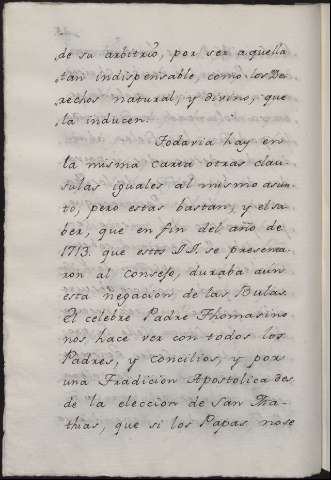 de su arbitrio, por ser aquella
tan indispensable, como los De-
rechos natural, y divino, que
la inducen.
Todavia hay en
la misma carta otras clau-
sulas iguales al mismo asun-
to, pero estas bastan, y el sa-
ber, que en fin del año de
1713. que estos PP. se presenta-
ron al Consejo, duraba aun
esta negacion de las Bulas.
El celebre Padre Thomasino
nos hace ver con todos los
Padres, y Concilios, y por
una Tradicion Apostolica des
de la eleccion de San Ma-
thias, que si los Papas no se